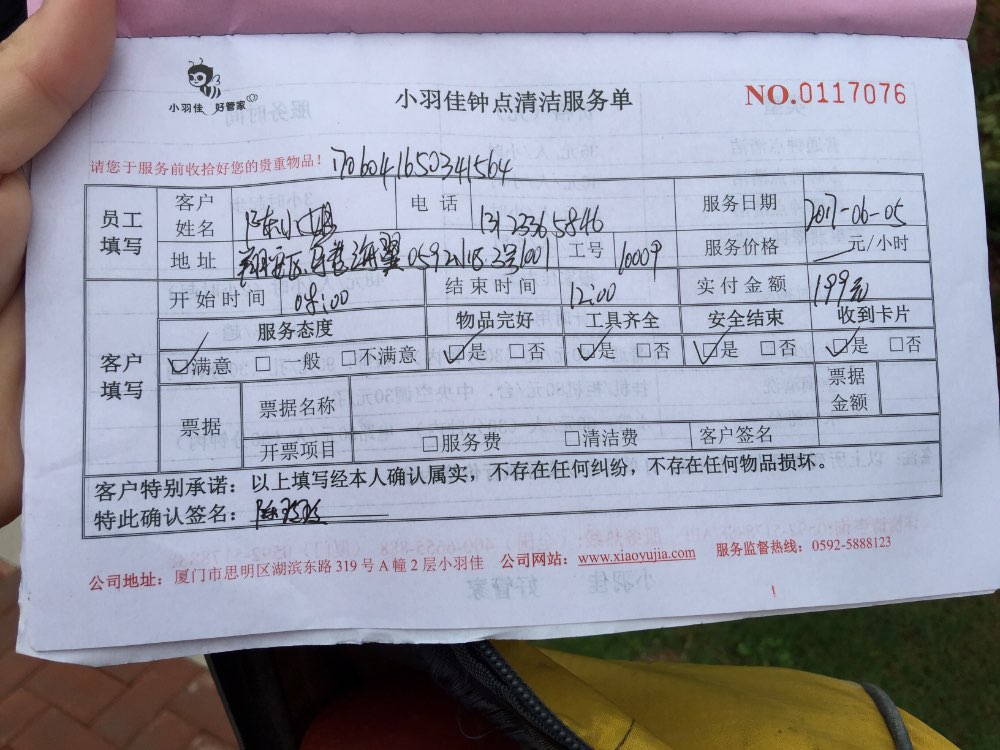 小羽佳 好管家
小羽佳钟点清洁服务单
NO.0117076
请您于服务前收拾好您的贵重物品！
1706041650341564
员工填写 客户姓名 陈小姐 电话 13123365846 服务日期 2017-06-05
地址 翔安区 海翼 0592 2号1001 工号 16009 服务价格 元/小时
客户填写 开始时间 08:00 结束时间 12:00 实付金额 199元
服务态度 物品完好 工具齐全 安全结束 收到卡片
☑满意 □一般 □不满意 ☑是 □否 ☑是 □否 ☑是 □否 ☑是 □否
票据 票据名称 票据金额
开票项目 □服务费 □清洁费 客户签名
客户特别承诺：以上填写经本人确认属实，不存在任何纠纷，不存在任何物品损坏。
特此确认签名：陈
公司地址：厦门市思明区湖滨东路 319 号 A 幢 2 层小羽佳 公司网站：www.xiaoyujia.com 服务监督热线：0592-5888123